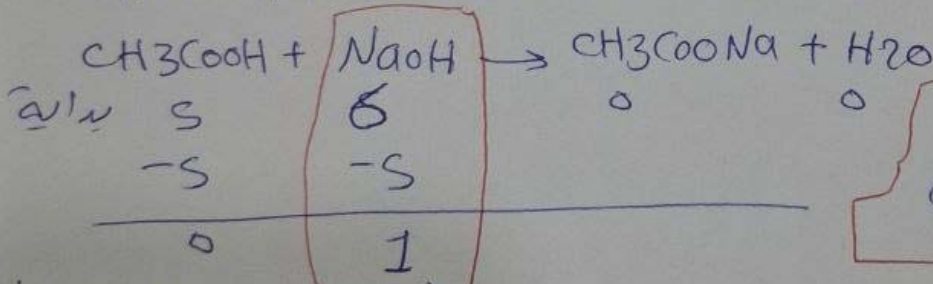 CH3COOH + NaOH → CH3COONa + H2O
بداية 5 6 0 0
-5 -5
0 1